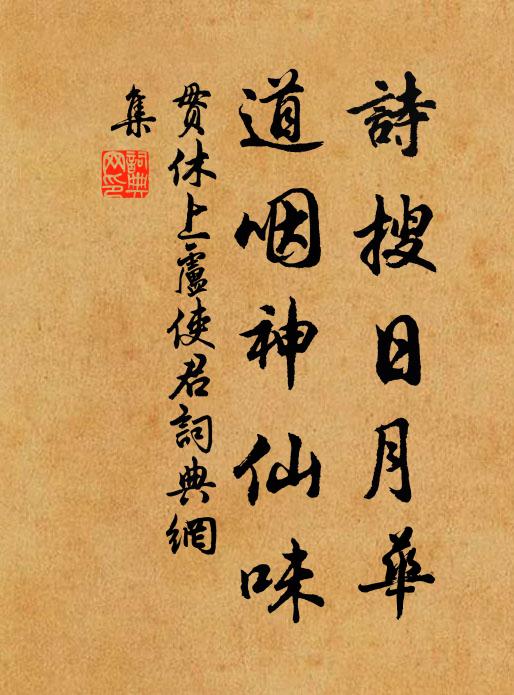 詩搜日月華
道咽神仙味
貫休上盧使君詞典網
集
詞典
网印